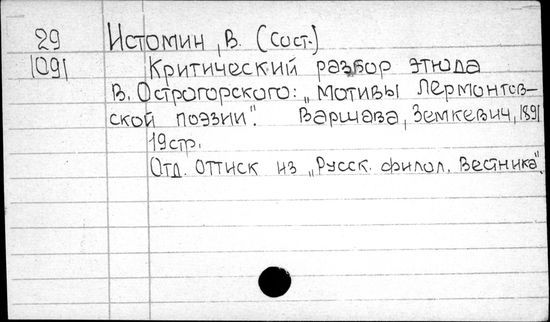 29 Истомин, В. (Сост.)
1091 Критический разбор этюда
В. Острогорского: „Мотивы Лермонтов-
ской поэзии". Варшава, Земкевич, 1891
19 стр.
Отд. оттиск из „Русск. филол. Вестника".